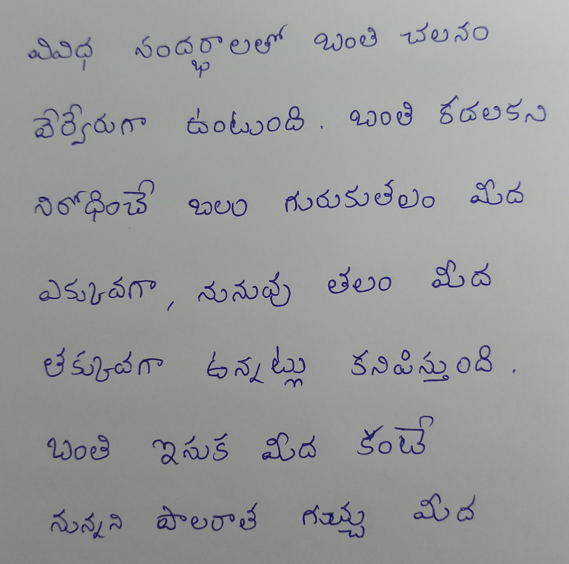 వివిధ సందర్భాలతో బంతి చలనం
వేర్వేరుగా ఉంటుంది. బంతి కదలికని
నిరోధించే బలం గురుకుతలం మీద
ఎక్కువగా, నునువు తలం మీద
తక్కువగా ఉన్నట్లు కనిపిస్తుంది.
బంతి ఇసుక మీద కంటే
నున్నని పాలరాత గచ్చు మీద